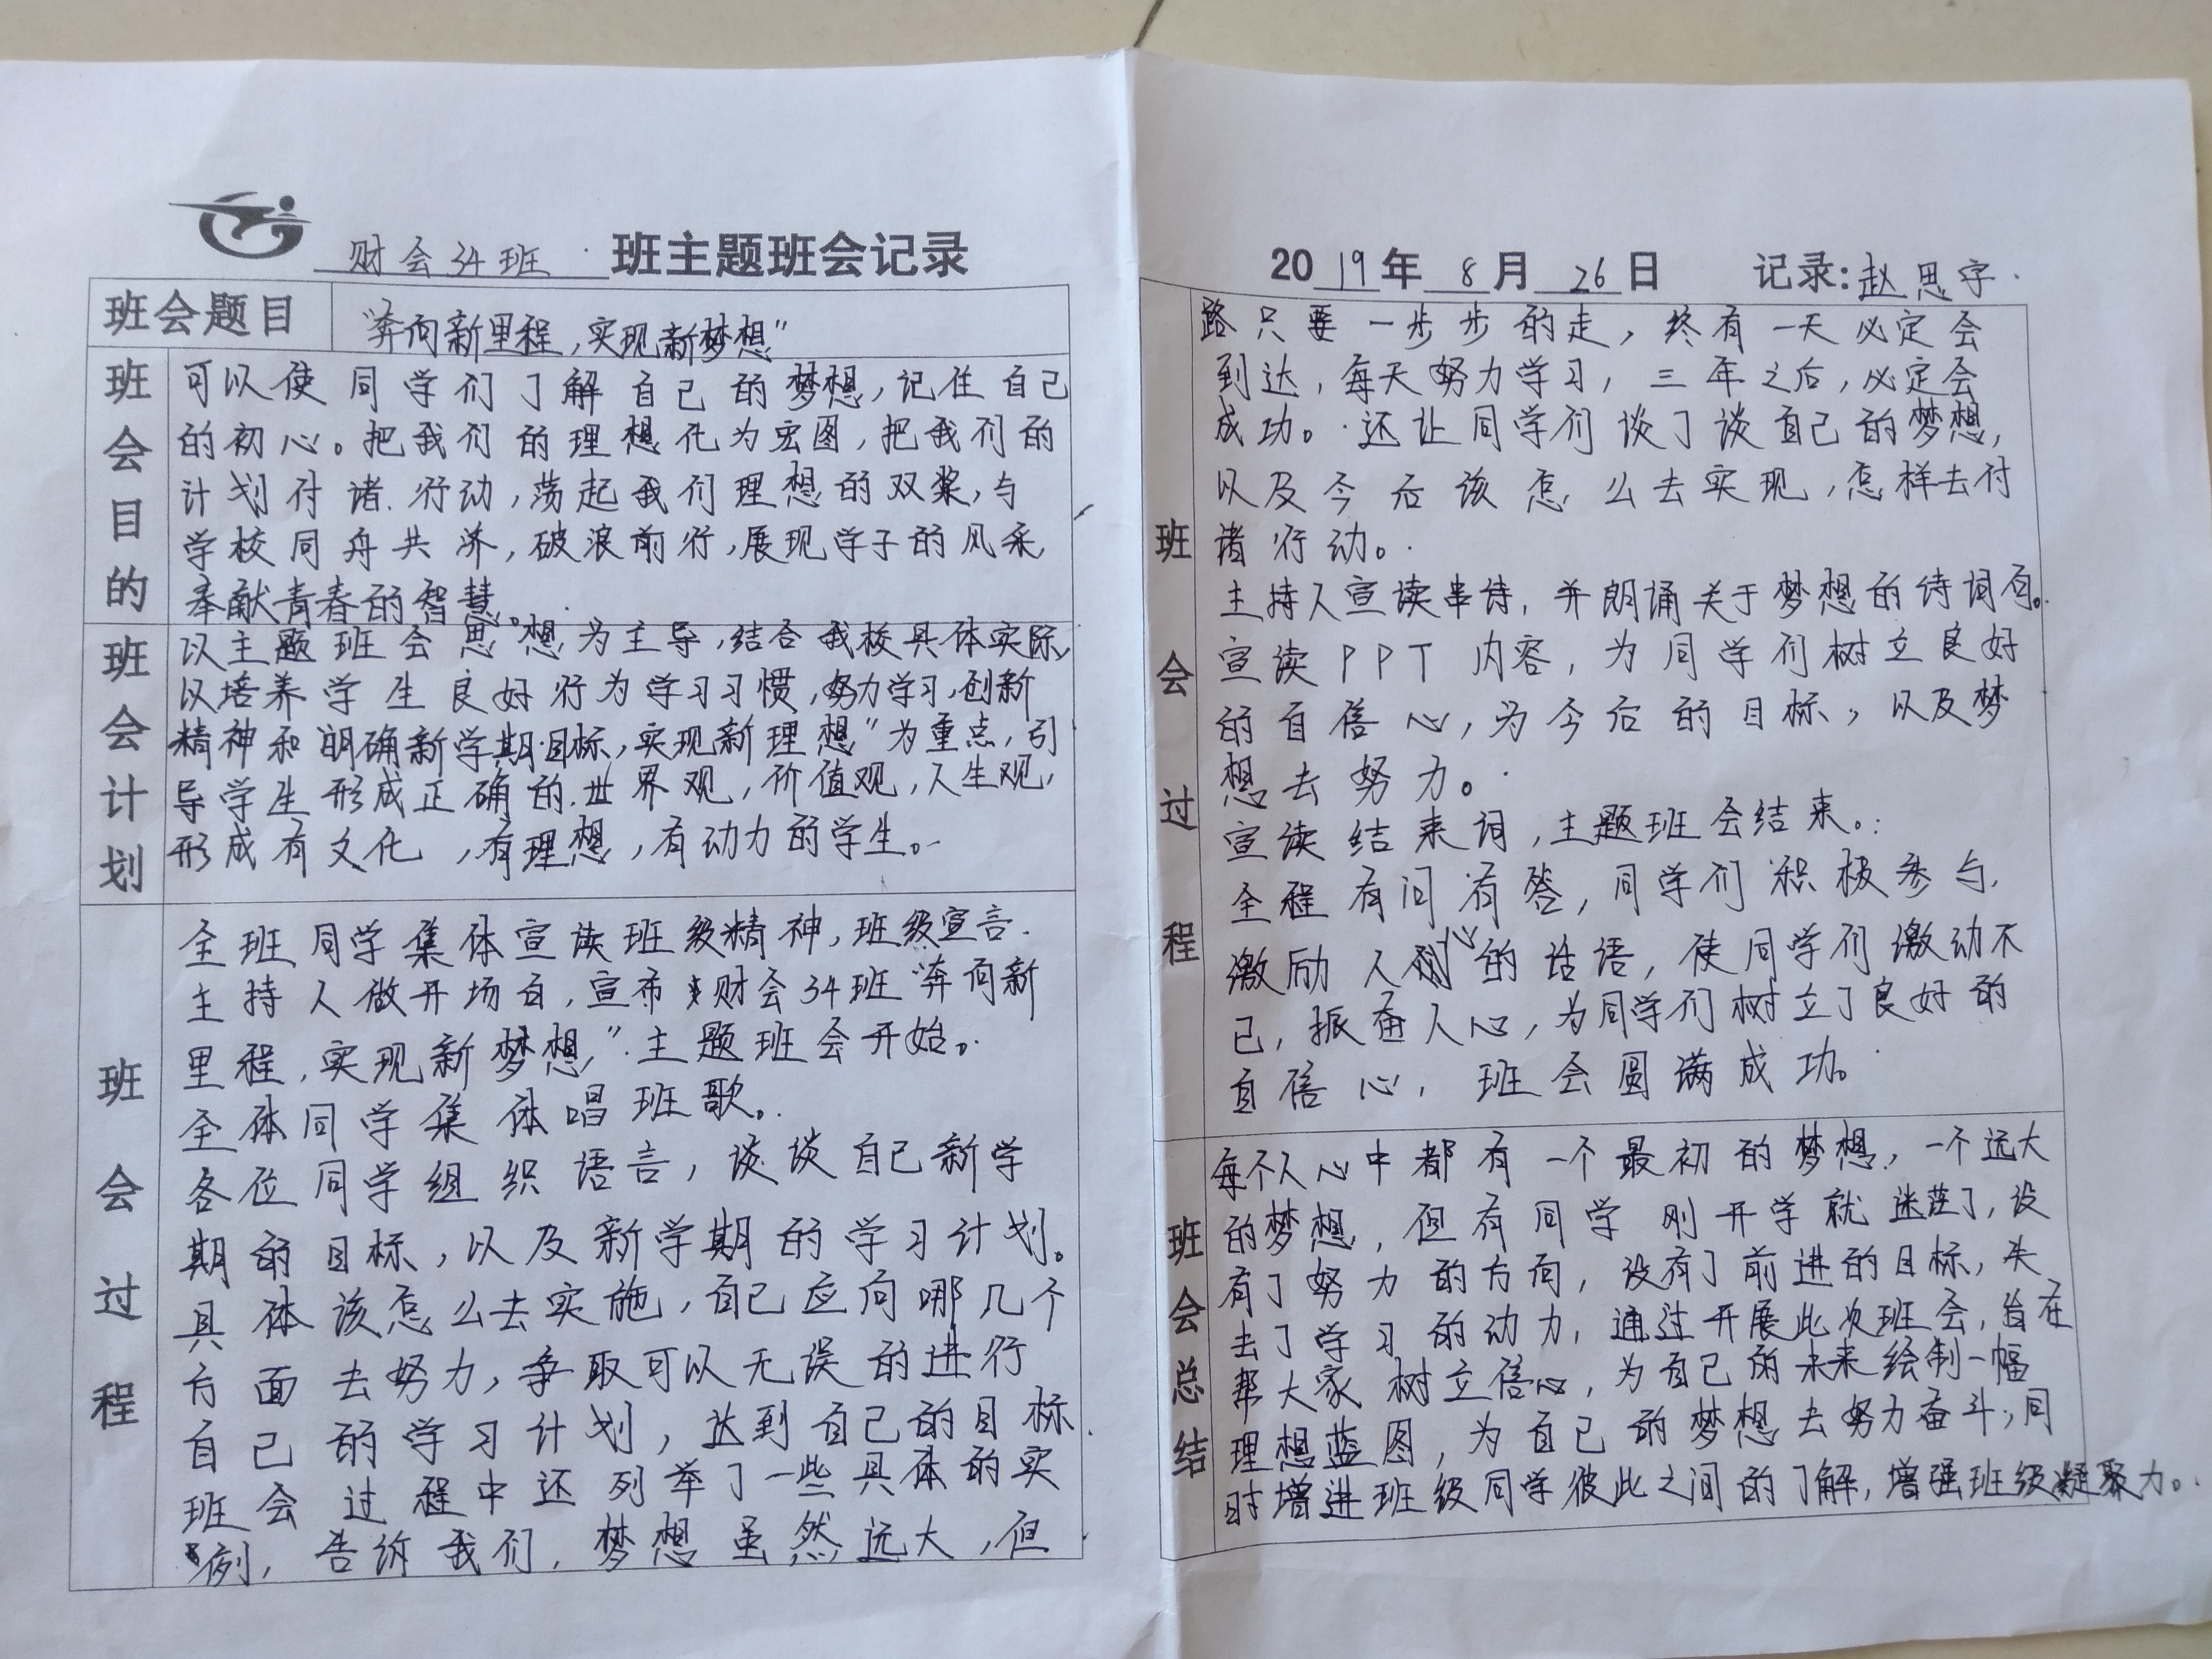 财会34班 班主题班会记录
班会题目
“奔向新里程,实现新梦想”
班会目的
可以使同学们了解自己的梦想,记住自己
的初心。把我们的理想化为宏图,把我们的
计划付诸行动,荡起我们理想的双桨,与
学校同舟共济,破浪前行,展现学子的风采
奉献青春的智慧。
班会计划
以主题班会思想为主导,结合我校具体实际,
以培养学生良好行为学习习惯,努力学习,创新
精神和“明确新学期目标,实现新理想”为重点,引
导学生形成正确的世界观,价值观,人生观,
形成有文化,有理想,有动力的学生。
班会过程
全班同学集体宣读班级精神,班级宣言.
主持人做开场白,宣布财会34班“奔向新
里程,实现新梦想”主题班会开始。
全体同学集体唱班歌。
各位同学组织语言,谈谈自己新学
期的目标,以及新学期的学习计划。
具体该怎么去实施,自己应向哪几个
方面去努力,争取可以无误的进行
自己的学习计划,达到自己的目标.
班会过程中还列举了一些具体的实
例,告诉我们,梦想虽然远大,但
2019年8月26日 记录:赵思宇
班会过程
路只要一步步的走,终有一天必定会
到达,每天努力学习,三年之后,必定会
成功。还让同学们谈了谈自己的梦想,
以及今后该怎么去实现,怎样去付
诸行动。
主持人宣读串诗,并朗诵关于梦想的诗词句。
宣读PPT内容,为同学们树立良好
的自信心,为今后的目标,以及梦
想去努力。
宣读结束词,主题班会结束。
全程有问有答,同学们积极参与,
激励人心的话语,使同学们激动不
已,振奋人心,为同学们树立了良好的
自信心,班会圆满成功。
班会总结
每个人心中都有一个最初的梦想,一个远大
的梦想,但有同学刚开学就迷茫了,没
有了努力的方向,没有了前进的目标,失
去了学习的动力,通过开展此次班会,旨在
帮大家树立信心,为自己的未来绘制一幅
理想蓝图,为自己的梦想去努力奋斗,同
时增进班级同学彼此之间的了解,增强班级凝聚力。